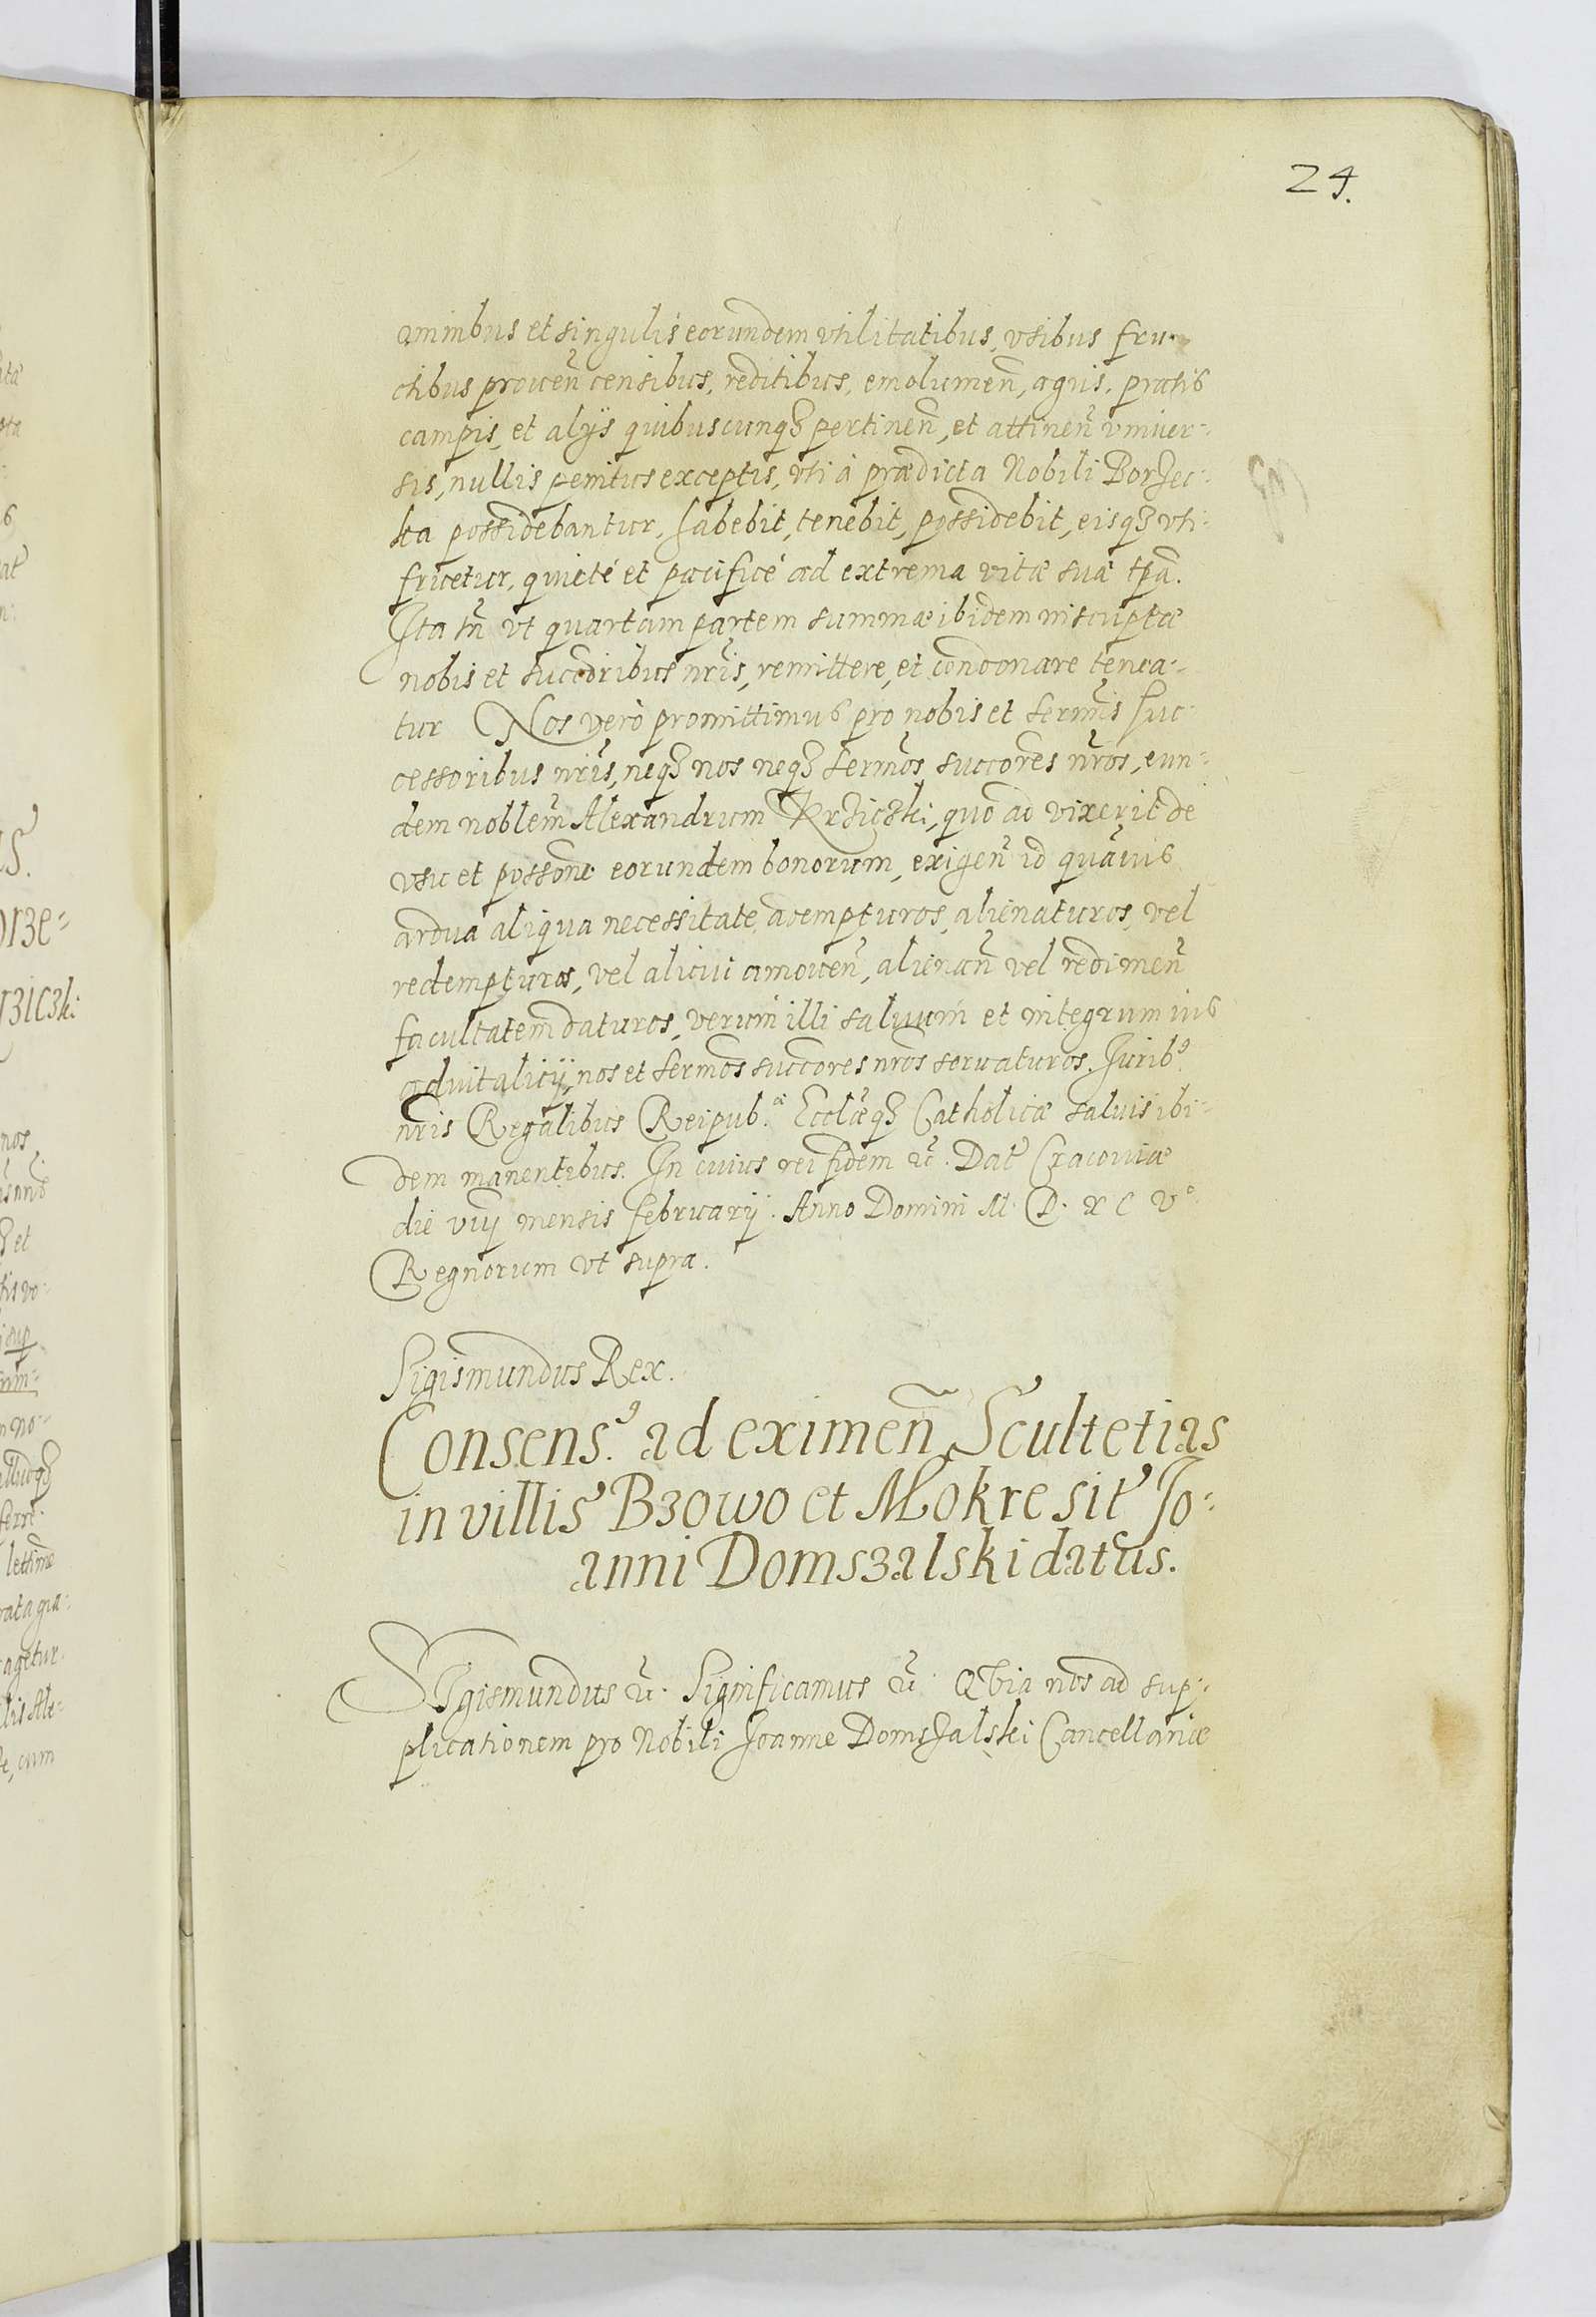 24.
omnibus et singulis eorundem vtilitatibus, vsibus fru-
ctibus prouen̄ censibus, reditibus, emolumen̄, agris, pratis
campis, et alijs quibuscunqȝ pertinen̄, et attinen̄ vniuer-
sis, nullis penitus exceptis, vti à prædicta Nobili Borzec-
ka possidebantur, habebit, tenebit, possidebit, eisqȝ vti-
fruetur, quieté et pacificé ad extrema vitæ suæ tp̄a.
Ita tn̄ vt quartam partem summæ ibidem inscriptæ
nobis et succōribus nr̄is, remittere, et condonare tenea-
tur Nos verò promittimus pro nobis et serm̄is suc-
cessoribus nr̄is, neqȝ nos neqȝ serm̄os succōres nr̄os, eun-
dem noblem̄ Alexandrum Krziczki, quo ad vixerit de
vsu et possōne eorundem bonorum, exigen̄ id quāuis
ardua aliqua necessitate, adempturos, alienaturos, vel
redempturos, vel alicui amouen̄, alienan̄ vel redimen̄
facultatem daturos, verum illi saluum et integrum ius
aduitalicij, nos et serm̄os succōres nr̄os seruaturos. Iurib⁹
nr̄is Regalibus Reipub.æ Ecclæqȝ Catholicæ saluis ibi-
dem manentibus. In cuius rei fidem etc̄. Dat̄ Cracouiæ
die viij mensis februarij. Anno Domini M. D. x c vᵒ
Regnorum vt supra.
Sigismundus Rex.
Consens⁹ ad eximen̄ Scultetias
in villis Bzowo et Mokre sit̄ Jo-
anni Domszalski datus.
Sigismundus etc̄. Significamus etc̄. QVia nos ad sup-
plicationem pro Nobili Joanne Domszalski Cancellariæ